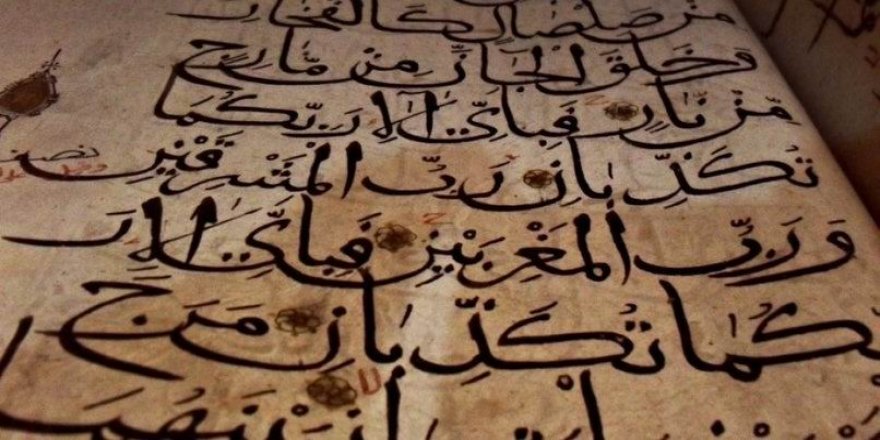 مِنْ صَلْصَالٍ كَالْفَخَّارِ
وَخَلَقَ الْجَانَّ مِنْ مَّارِجٍ
مِّنْ نَّارٍ فَبِأَيِّ اٰلَاءِ رَبِّكُمَا
تُكَذِّبَانِ رَبُّ الْمَشْرِقَيْنِ
وَرَبُّ الْمَغْرِبَيْنِ فَبِأَيِّ اٰلَاءِ رَ
بِّكُمَا تُكَذِّبَانِ مَرَجَ